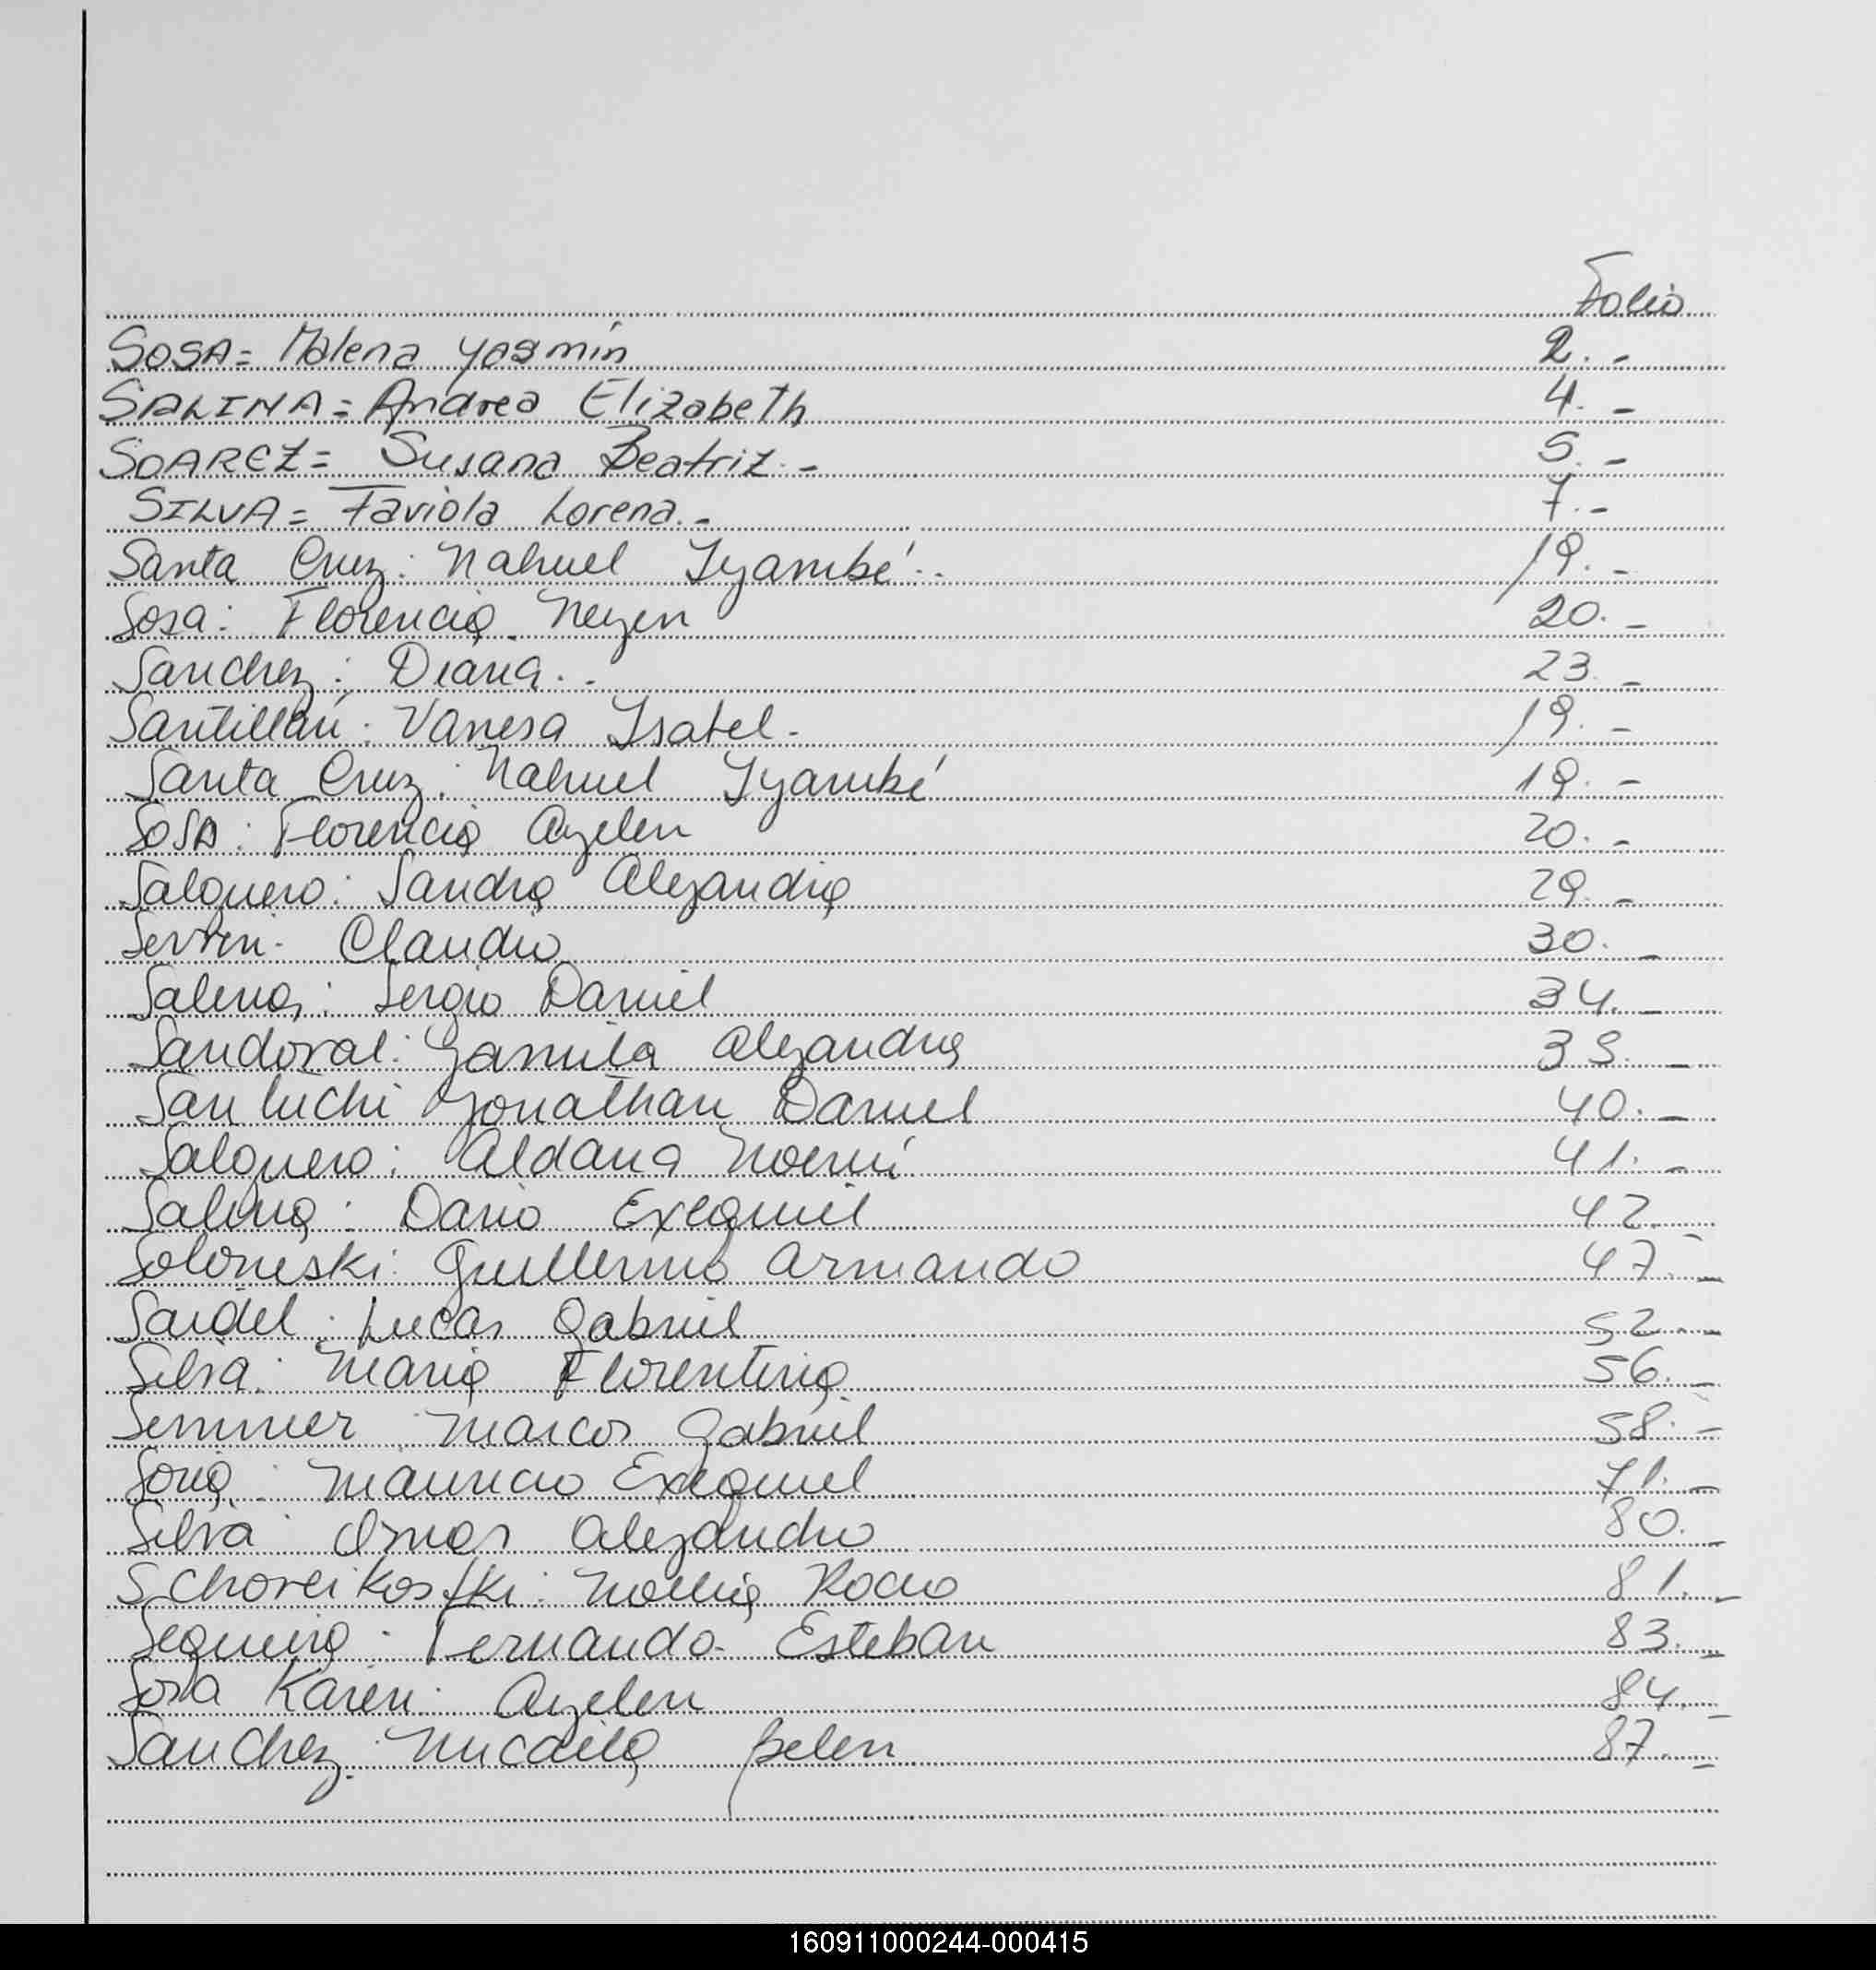 Folio
SOSA= Malena Yasmín 2.-
SALINA= Andrea Elizabeth 4.-
SOAREZ= Susana Beatriz.- 5.-
SILVA= Faviola Lorena.- 7.-
Santa Cruz: Nahuel Yyambé.- 19.-
Sosa: Florencia Neyen 20.-
Sanchez: Diana.- 23.-
Santillán: Vanesa Ysabel- 19.-
Santa Cruz: Nahuel Yyambé 19.-
Sosa: Florencia Ayelen 20.-
Salguero: Sandra Alejandra 29.-
Servin: Claudio 30.-
Salinas: Sergio Daniel 34.-
Sandoval: Yamila Alejandra 35.-
Sanluchi Jonathan Daniel 40.-
Salguero: Aldana Noemí 41.-
Salina: Dario Exequiel 42.-
Soloneski: Guillermo Armando 47.-
Saidel: Lucas Gabriel 52.-
Silva: Maria Florentina 56.-
Semmer Marcos Gabriel 58.-
Soria: Mauricio Exequiel 71.-
Silva Omar Alejandro 80.-
Schoreikosfki: Rocio 81.-
Sequeira: Fernando Esteban 83.-
Sosa Karen: Ayelen 84.-
Sanchez: Micaela Belen 87.-
160911000244-000415